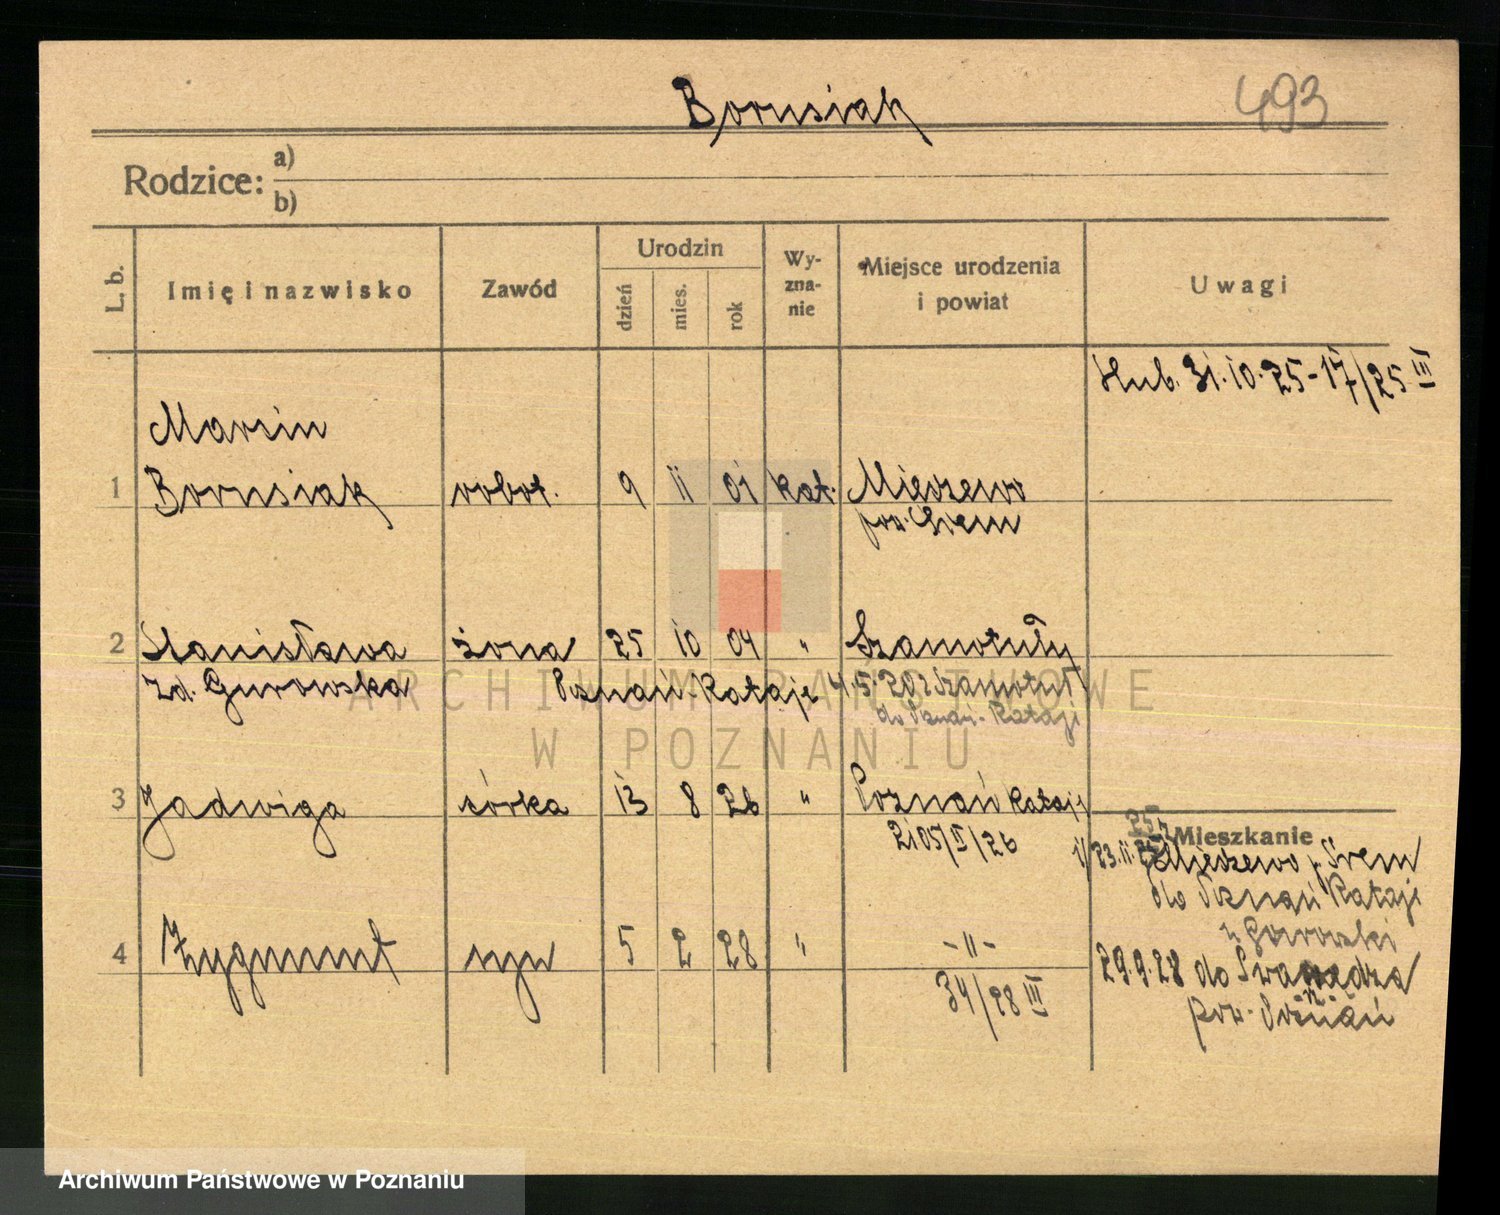 Borusiak
493
Rodzice:
a)
b)
L. b.
Imię i nazwisko
Zawód
Urodzin
dzień
mies.
rok
Wy-
zna-
nie
Miejsce urodzenia
i powiat
Uwagi
Ślub. 31.10.25-17/25 III
Marcin
1 Borusiak robot. 9 11 01 kat. Mieczewo
pow. Śrem
2 Stanisława żona 25 10 04 " Szamotuły
zd. Gurowska Poznań-Rataje 4.5. Szamotuł
do Poznań-Rataji
3 Jadwiga córka 13 8 26 " Poznań Rataje
2105/II/26
Mieszkanie
1/23.11.25 z Mieczewo p. Śrem
do Poznań Rataji
u Gorowski
4 Zygmunt syn 5 2 28 " -"-
34/28 III
29.9.28 do Swarzędza
pow. Poznań
ARCHIWUM PAŃSTWOWE
W POZNANIU
Archiwum Państwowe w Poznaniu